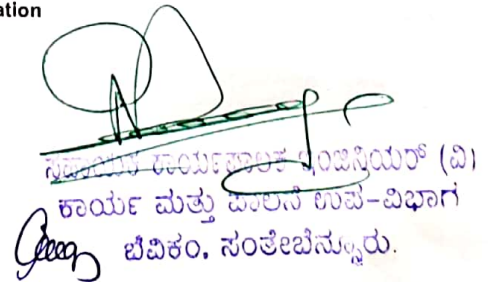 ation
ಸಹಾಯಕ ಕಾರ್ಯಪಾಲಕ ಇಂಜಿನಿಯರ್ (ವಿ)
ಕಾರ್ಯ ಮತ್ತು ಪಾಲನೆ ಉಪ-ವಿಭಾಗ
ಬೆವಿಕಂ. ಸಂತೇಬೆನ್ನೂರು.